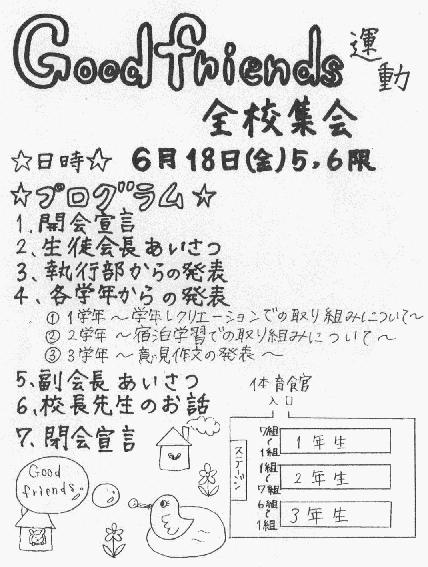 Good friends 運動
全校集会
☆日時☆ 6月18日(金)5,6限
☆プログラム☆
1、開会宣言
2、生徒会長あいさつ
3、執行部からの発表
4、各学年からの発表
①1学年～学年レクリエーションでの取り組みについて～
②2学年～宿泊学習での取り組みについて～
③3学年～意見作文の発表～
5、副会長あいさつ
6、校長先生のお話
7、閉会宣言
体育食官
入口
ステージ
7組～1組 1年生
1組～7組 2年生
6組～1組 3年生
Good
friends